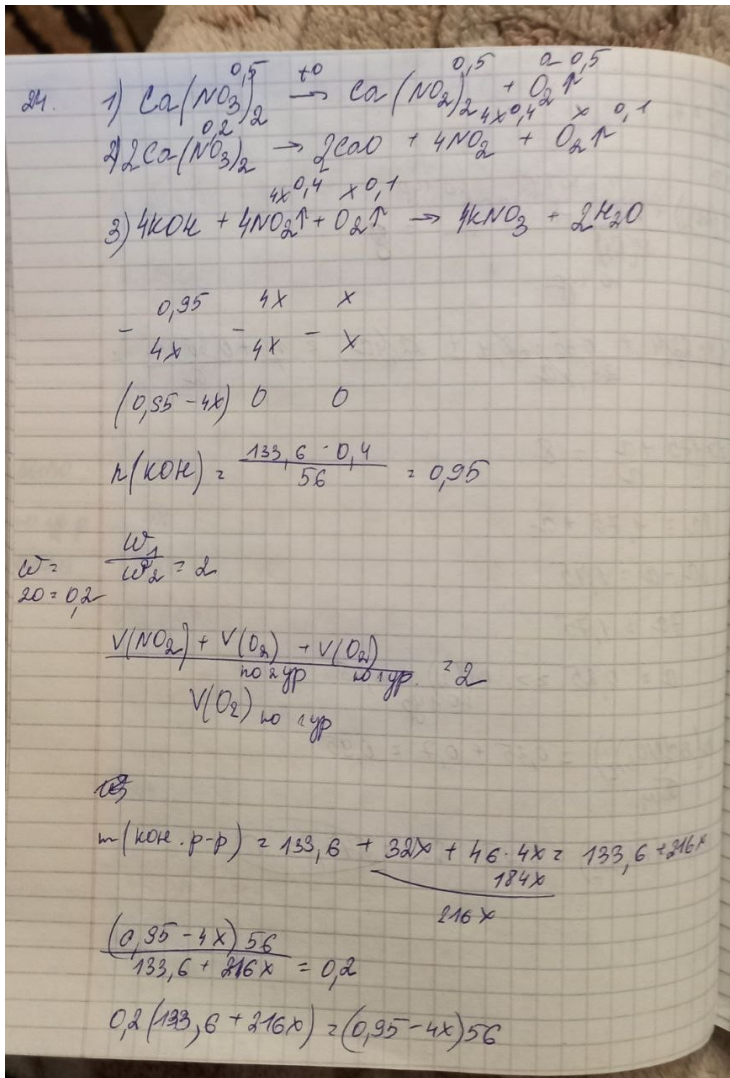 24. 1) Ca(NO3)2 →t0 Ca(NO2)2 + O2↑
0,5 0,5 a-0,5
2) 2Ca(NO3)2 → 2CaO + 4NO2 + O2↑
0,2 4x 0,4 x 0,1
3) 4KOH + 4NO2↑ + O2↑ → 4KNO3 + 2H2O
4x 0,4 x 0,1
0,95 4x x
- 4x - 4x - x
(0,95 - 4x) 0 0
n(KOH) = 133,6 · 0,4 / 56 = 0,95
w1 / w2 = 2
w =
20 = 0,2
V(NO2) + V(O2) по 2 ур + V(O2) по 1 ур. / V(O2) по 1 ур = 2
m(кон. р-р) = 133,6 + 32x + 46·4x = 133,6 + 216x
184x
216x
(0,95 - 4x) 56 / 133,6 + 216x = 0,2
0,2(133,6 + 216x) = (0,95 - 4x)56